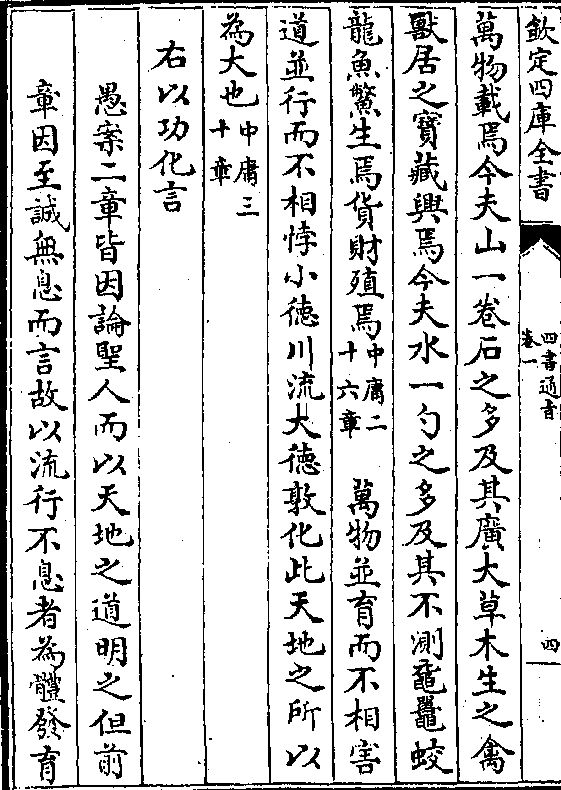 欽定四庫全書
四書通旨
卷一
四
萬物載焉今夫山一卷石之多及其廣大草木生之禽
獸居之寶藏興焉今夫水一勺之多及其不測黿鼉蛟
龍魚鱉生焉貨財殖焉中庸二十六章 萬物並育而不相害
道並行而不相悖小徳川流大徳敦化此天地之所以
為大也中庸三十章
右以功化言
愚案二章皆因論聖人而以天地之道明之但前
章因至誠無息而言故以流行不息者為體發育